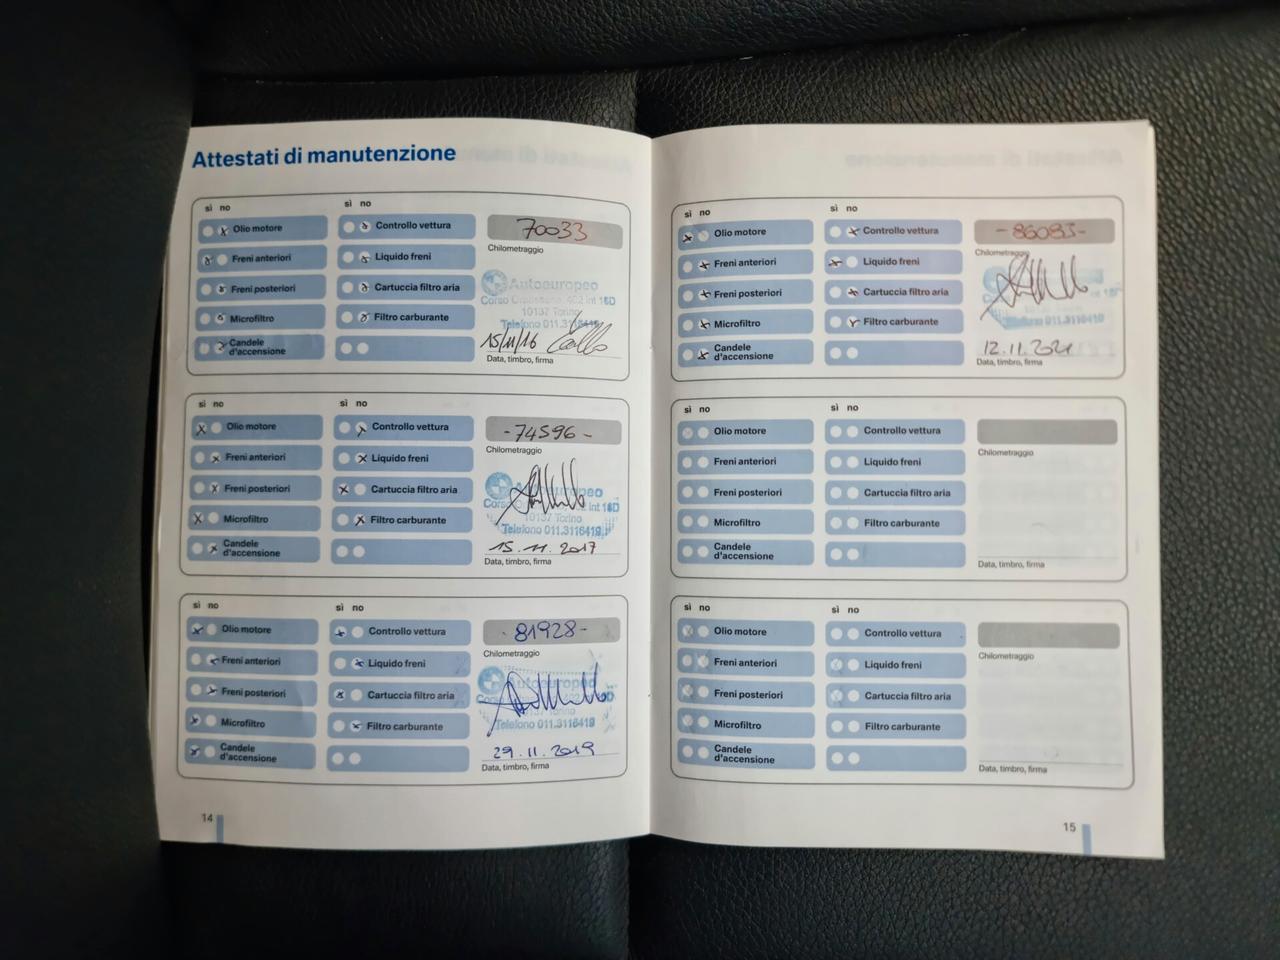 Attestati di manutenzione
sì no
sì no
Olio motore
Controllo vettura
70033
Chilometraggio
Freni anteriori
Liquido freni
Freni posteriori
Cartuccia filtro aria
Autoeuropeo
Corso Orbassano, 402 int 18D
10137 Torino
Telefono 011.3116419
Microfiltro
Filtro carburante
Candele
d'accensione
15/11/16
Data, timbro, firma
sì no
sì no
Olio motore
Controllo vettura
-74596-
Chilometraggio
Freni anteriori
Liquido freni
Freni posteriori
Cartuccia filtro aria
int 18D
10137 Torino
Telefono 011.3116419
Microfiltro
Filtro carburante
Candele
d'accensione
15.11.2017
Data, timbro, firma
sì no
sì no
Olio motore
Controllo vettura
-81928-
Chilometraggio
Freni anteriori
Liquido freni
Freni posteriori
Cartuccia filtro aria
Autoeuropeo
Telefono 011.3116419
Microfiltro
Filtro carburante
Candele
d'accensione
29.11.2019
Data, timbro, firma
14
sì no
sì no
Olio motore
Controllo vettura
-86083-
Chilometraggio
Freni anteriori
Liquido freni
Freni posteriori
Cartuccia filtro aria
Telefono 011.3116419
Microfiltro
Filtro carburante
Candele
d'accensione
12.11.2021
Data, timbro, firma
sì no
sì no
Olio motore
Controllo vettura
Chilometraggio
Freni anteriori
Liquido freni
Freni posteriori
Cartuccia filtro aria
Microfiltro
Filtro carburante
Candele
d'accensione
Data, timbro, firma
sì no
sì no
Olio motore
Controllo vettura
Chilometraggio
Freni anteriori
Liquido freni
Freni posteriori
Cartuccia filtro aria
Microfiltro
Filtro carburante
Candele
d'accensione
Data, timbro, firma
15